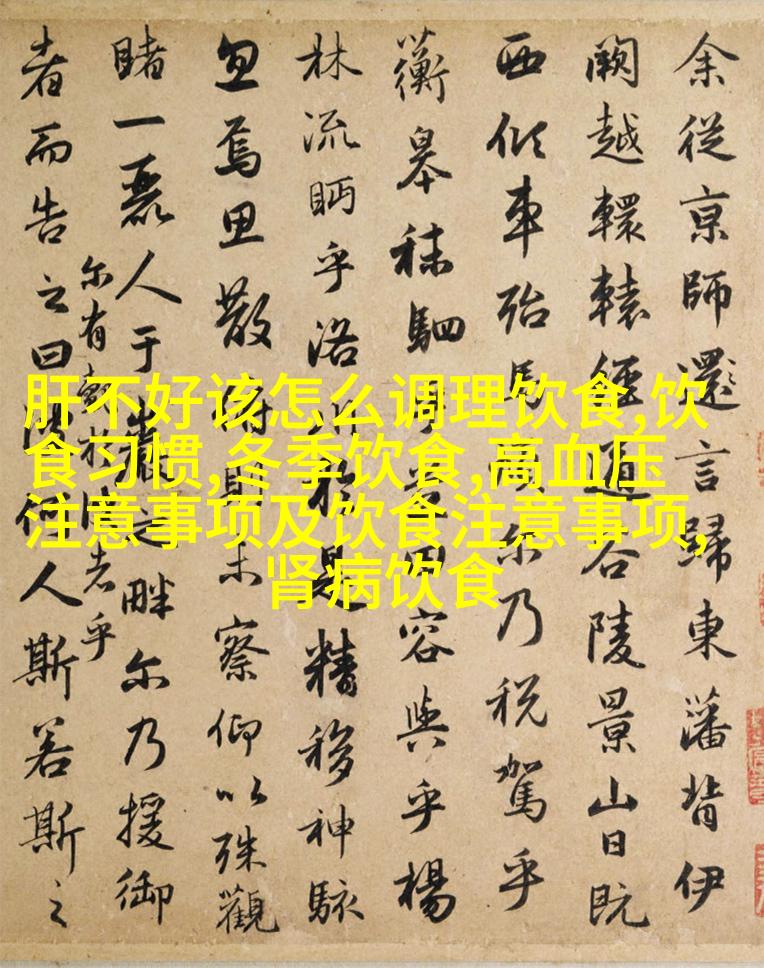 肝不好该怎么调理饮食,饮
食习惯,冬季饮食,高血压
注意事项及饮食注意事项,
肾病饮食
余從京師還言歸東藩背伊
闕越轘轅經通谷陵景山日既
西傾車殆馬煩尔乃税駕乎
蘅皋秣駟乎田容與乎楊
林流眄乎洛於是精移神駭
忽焉思散俯則未察仰以殊觀
睹一麗人于巖之畔尔乃援御
者而告之曰何人斯若斯之
尔有覿於者乎